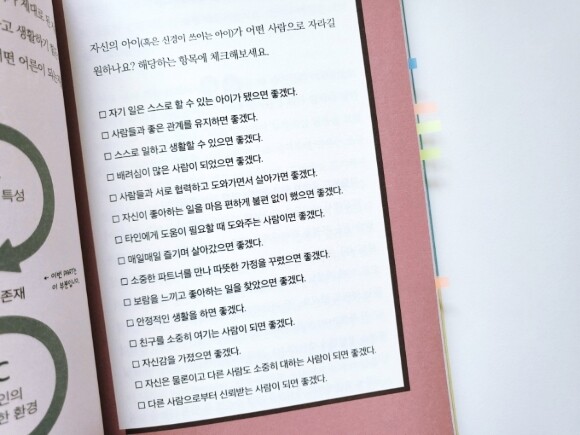 고 생활하기 힘
떤 어른이 되
특성
존재
인의
한 환경
자신의 아이(혹은 신경이 쓰이는 아이)가 어떤 사람으로 자라길
원하나요? 해당하는 항목에 체크해보세요.
□ 자기 일은 스스로 할 수 있는 아이가 됐으면 좋겠다.
□ 사람들과 좋은 관계를 유지하면 좋겠다.
□ 스스로 일하고 생활할 수 있으면 좋겠다.
□ 배려심이 많은 사람이 되었으면 좋겠다.
□ 사람들과 서로 협력하고 도와가면서 살아가면 좋겠다.
□ 자신이 좋아하는 일을 마음 편하게 불편 없이 했으면 좋겠다.
□ 타인에게 도움이 필요할 때 도와주는 사람이면 좋겠다.
□ 매일매일 즐기며 살아갔으면 좋겠다.
□ 소중한 파트너를 만나 따뜻한 가정을 꾸렸으면 좋겠다.
□ 보람을 느끼고 좋아하는 일을 찾았으면 좋겠다.
□ 안정적인 생활을 하면 좋겠다.
□ 친구를 소중히 여기는 사람이 되면 좋겠다.
□ 자신감을 가졌으면 좋겠다.
□ 자신은 물론이고 다른 사람도 소중히 대하는 사람이 되면 좋겠다.
□ 다른 사람으로부터 신뢰받는 사람이 되면 좋겠다.